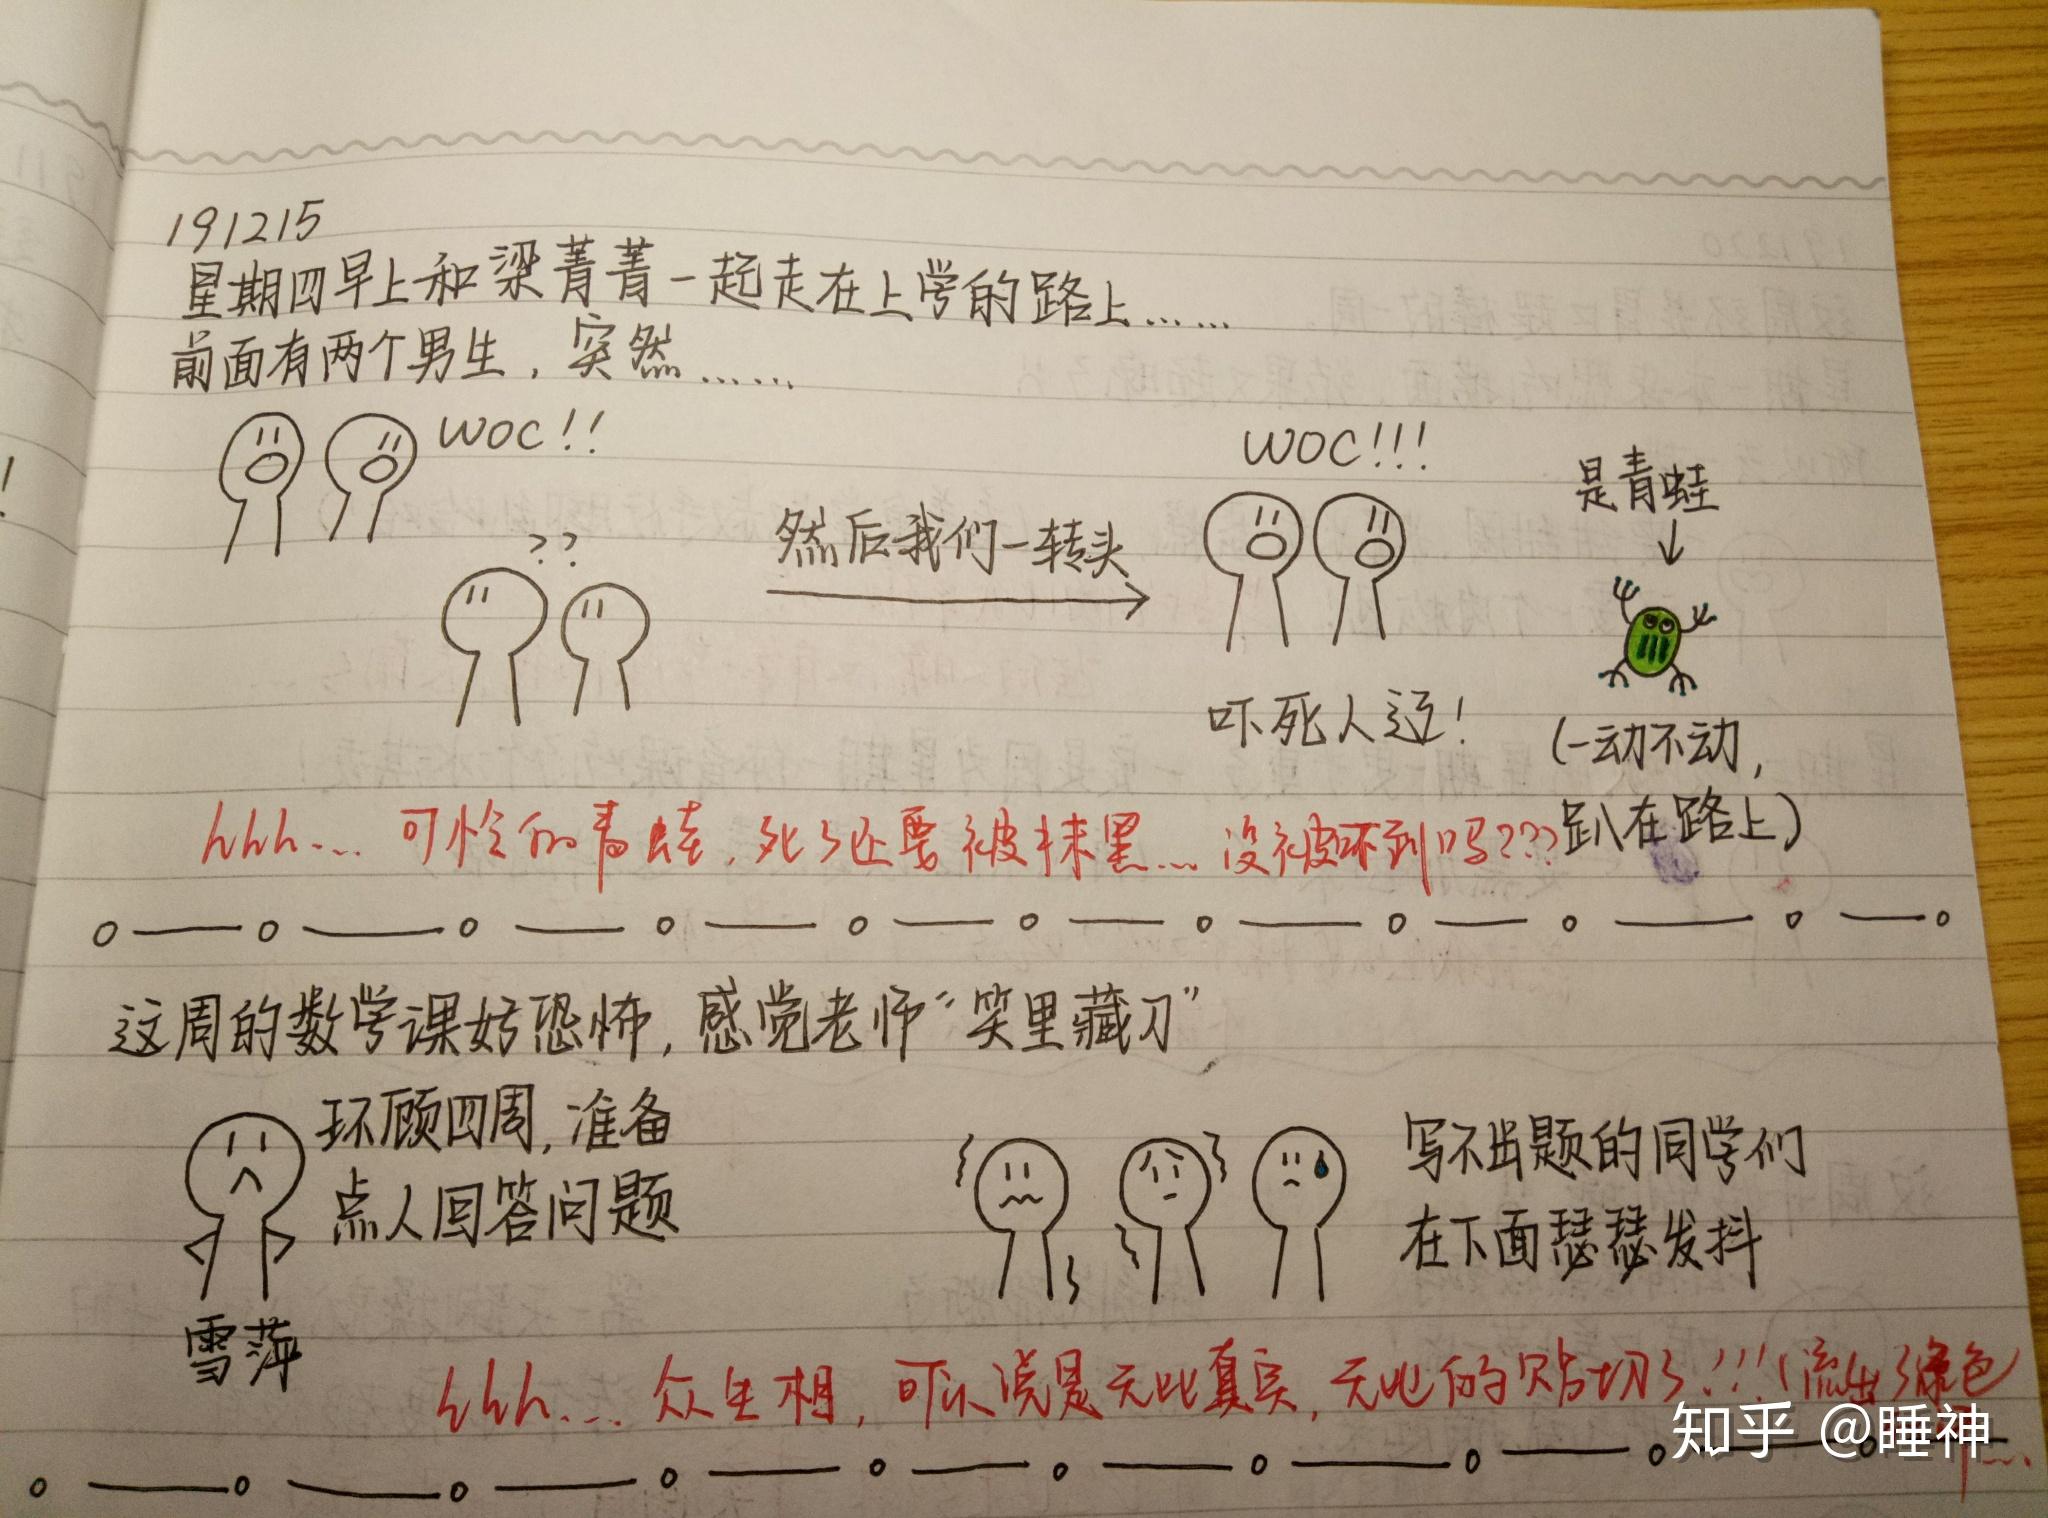 191215
星期四早上和梁菁菁一起走在上学的路上……
前面有两个男生，突然……
WOC!!
??
然后我们一转头
WOC!!!
是青蛙
吓死人
(一动不动，
趴在路上)
hhh…. 可怜的青蛙，死了还要被抹黑…. 没被吓到吗???
这周的数学课好恐怖，感觉老师“笑里藏刀”
环顾四周，准备
点人回答问题
雪萍
写不出题的同学们
在下面瑟瑟发抖
hhh…. 众生相，可以说是无比真实，无比的贴切了!!!(流出了绿色
知乎 @睡神